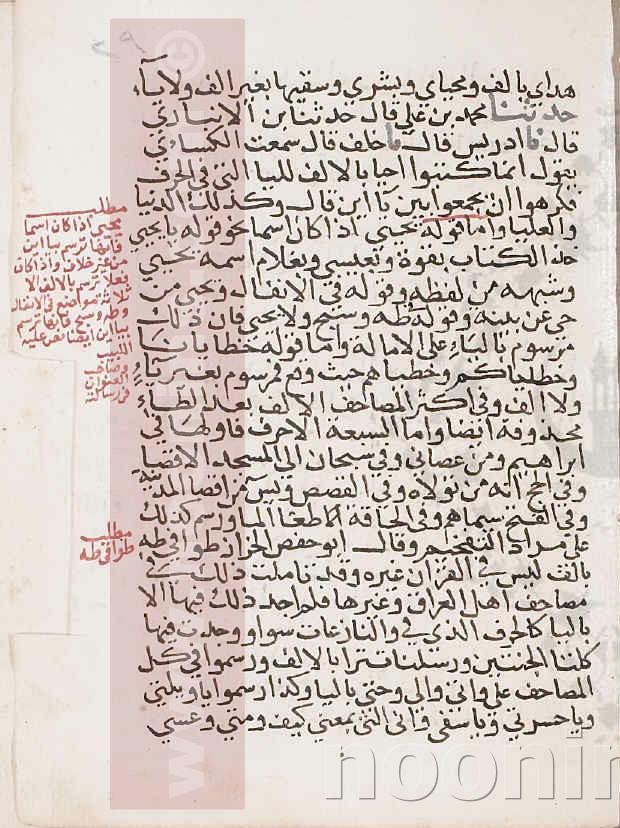 هداي بالف ومحياي وبشرى وسقيها بغير الف ولا ياء
حدثنا محمد بن علي قال حدثنا بن الانباري
قال نا ادريس قال نا خلف قال سمعت الكسائي
يقول انما كتبوا احيا بالالف لليا التي في الحرف
فكرهوا ان يجمعوا بين يا اين قال وكذلك الدنيا
والعليا واما قوله يحيى اذا كان اسما نحو قوله يا يحيى
خذ الكتاب بقوة وبعيسى وبغلام اسمه يحيى
وشبهه من لفظه وقوله في الانفال ويحيى من
حي عن بينة وقوله طه وسبح ولا يحيى فان ذلك
مرسوم بالياء على الامالة واما قوله خطايانا
وخطاياكم وخطاياهم حيث وقع فمرسوم بغير ياء
ولا الف وفي اكثر المصاحف الالف بعد الطاء
محذوفة ايضا واما السبعة الاحرف فاولها في
ابراهيم ومن عصاني وفي سبحان الى المسجد الاقصا
وفي الحج انه من تولاه وفي القصص ويس من اقصا المدينة
وفي الفتح سيماهم وفي الحاقة لما طغا الما ورسم كذلك
على مراد التفخيم وقال ابو حفص الخزاز طوا في طه
بالف ليس في القران غيره وقد تاملت ذلك في
مصاحف اهل العراق وغيرها فلم اجد ذلك فيها الا
باليا كالحرف الذي في والنازعات سوا ووجدت فيها
كلتا الجنتين ورسلنا تترا بالالف ورسموا في كل
المصاحف على واني والى وحتى باليا وكذا رسموا يا ويلتي
ويا حسرتي ويا سفي واني التي بمعنى كيف ومتى وعسى
مطلب
يحيى اذا كان اسما
فانها ترسم بيا اين
من غير خلاف واذا كان
فعلا ترسم بالالف الا
ثلاثة مواضع في الانفال
وطه وسبح فانها ترسم
بيا اين ايضا نص عليه
اللبيب
وصاحب
العنوان
في رسالته
مطلب
طوا في طه
noonin